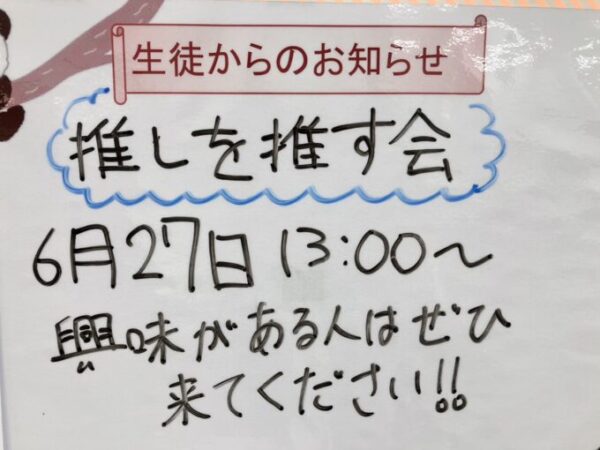 生徒からのお知らせ
推しを推す会
6月27日 13:00～
興味がある人はぜひ
来てください!!